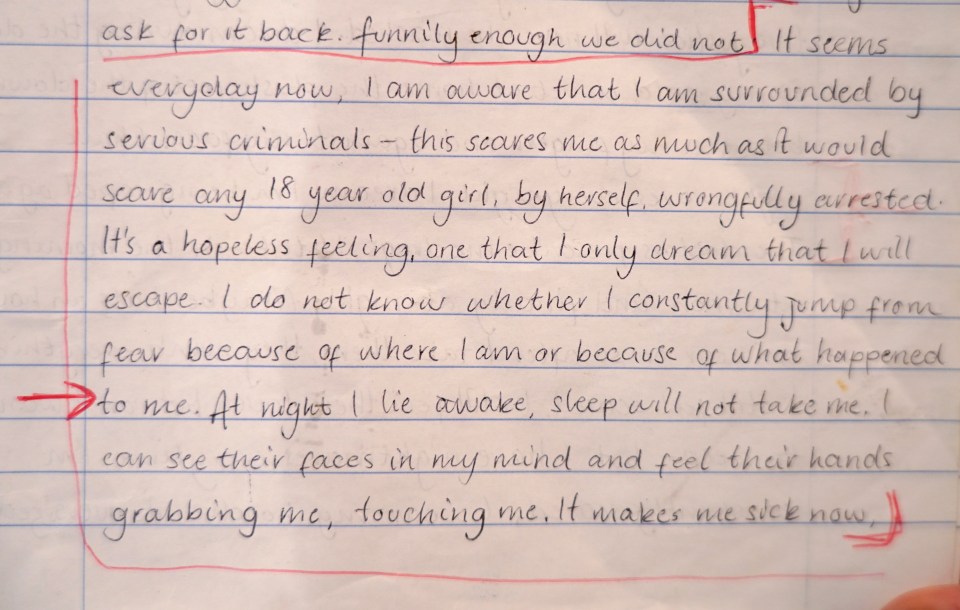 ask for it back. funnily enough we did not It seems
everyday now, I am aware that I am surrounded by
serious criminals – this scares me as much as it would
scare any 18 year old girl, by herself, wrongfully arrested.
It's a hopeless feeling, one that I only dream that I will
escape. I do not know whether I constantly jump from
fear because of where I am or because of what happened
to me. At night I lie awake, sleep will not take me. I
can see their faces in my mind and feel their hands
grabbing me, touching me. It makes me sick now,